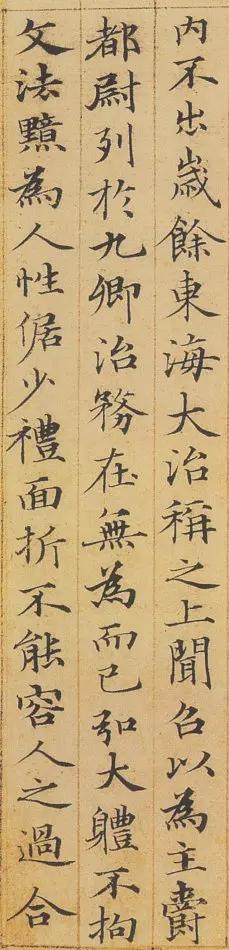 內不出歲餘東海大治稱之上聞召以為主爵
都尉列於九卿治務在無為而已弘大軆不拘
文法黯為人性倨少禮面折不能容人之過合